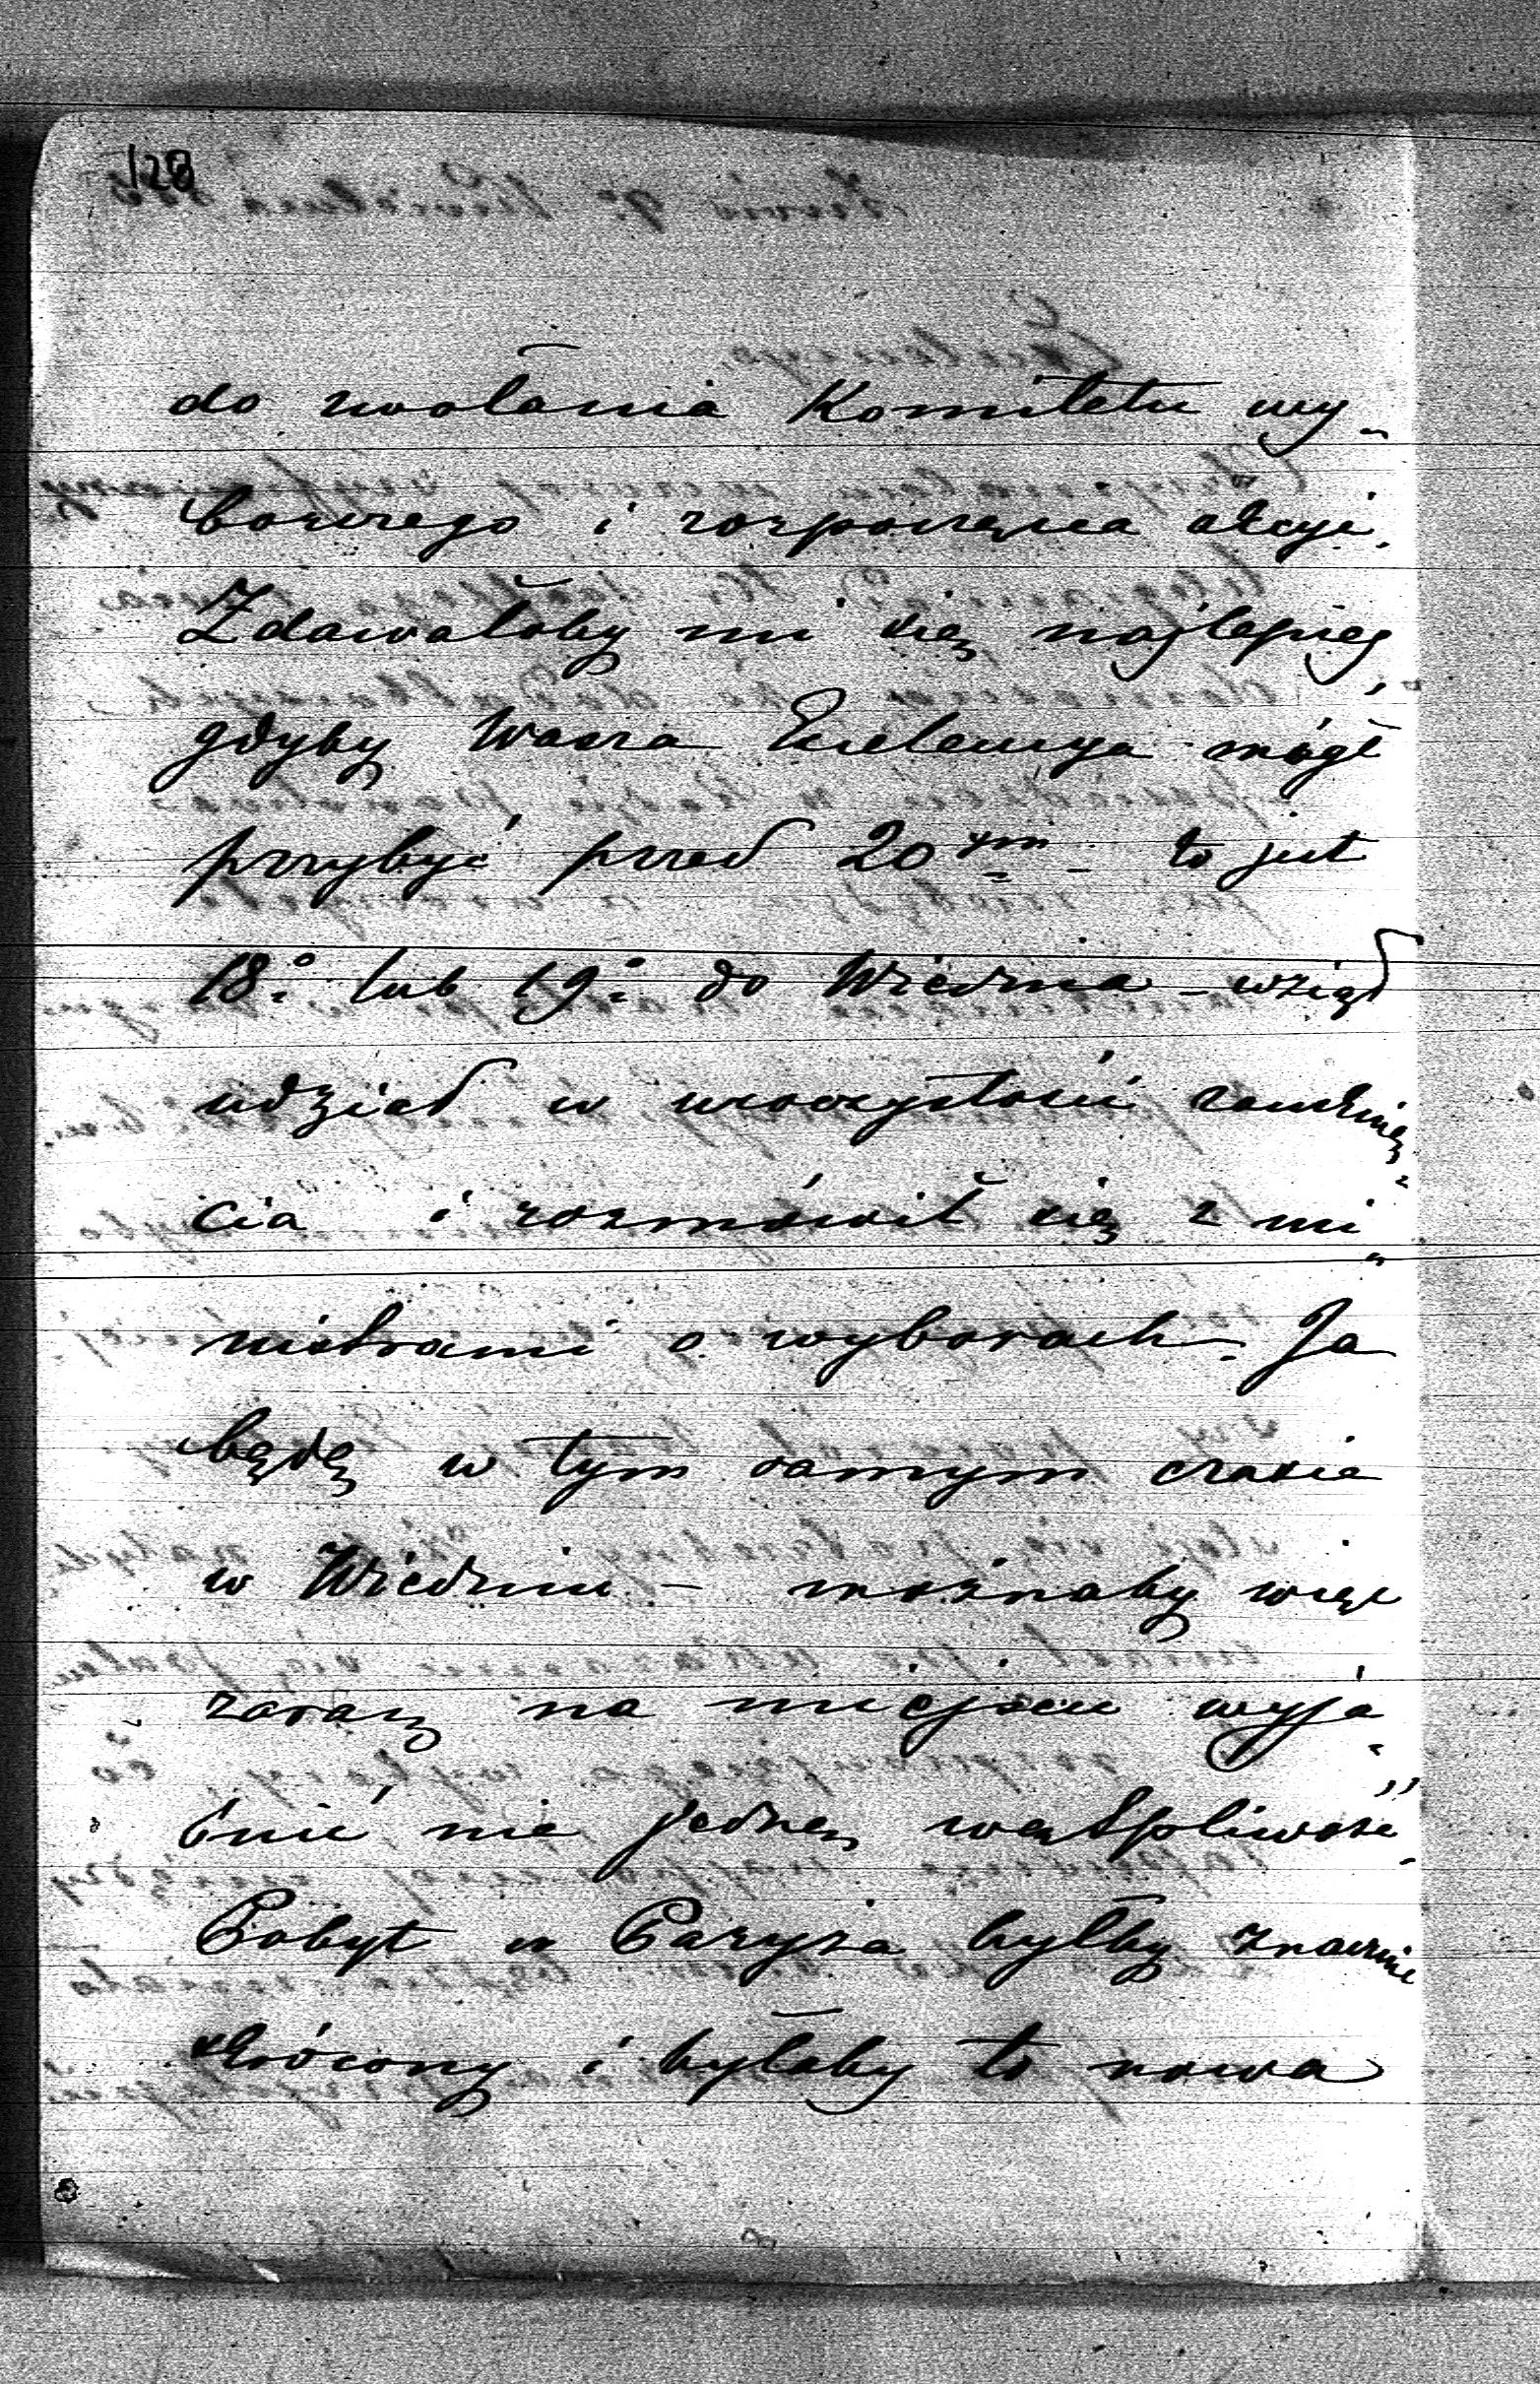 128
do zwołania Komitetu wy-
borczego i rozpoczęcia akcyi.
Zdawałoby mi się najlepiej,
gdyby Wasza Excelencya mógł
przybyć przed 20ym - to jest
18.° lub 19.° do Wiednia - wziął
udział w uroczystości zamknię-
cia i rozmówił się z mi-
nistrami o wyborach. Ja
będę w tym samym czasie
w Wiedniu - możnaby więc
zaraz na miejscu wyja-
śnić nie jedną wątpliwość.
Pobyt w Paryża byłby znacznie
skrócony i byłaby to nowa